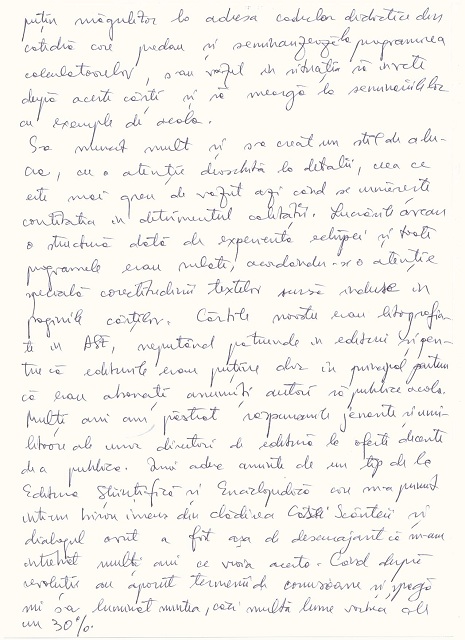 puțin măgulitor la adresa cadrelor didactice din
catedră care predau și seminarizează la programarea
calculatoarelor, s-au văzut în situația să învețe
după aceste cărți și să meargă la seminariile
cu exemple de acolo.
S-a muncit mult și s-a creat un stil de a lu-
cra, cu o atenție deosebită la detalii, ceea ce
este mai greu de văzut azi când se urmărește
cantitatea în detrimentul calității. Lucrările aveau
o structură dată de experiența echipei și toate
programele erau rulate, acordându-se o atenție
specială corectitudinii textelor sursă incluse în
paginile cărților. Cărțile noastre erau litografia-
te în ASE, neputând pătrunde în edituri și pen-
tru că editurile erau puține dar în principal pentru
că erau abonați anumiți autori să publice acolo.
Mulți ani am păstrat răspunsurile jenante și umi-
litoare ale unor directori de editură la oferte decente
de a publica. Îmi aduc aminte de un tip de la
Editura Științifică și Enciclopedică care m-a primit
într-un birou imens din clădirea Casei Scânteii și
dialogul avut a fost așa de descurajant că m-am
întrebat mulți ani ce vroia acesta. Când după
revoluție au apărut termenii de comisioane și șpagă
mi s-a luminat mintea, căci multă lume vorbea de
un 30%.